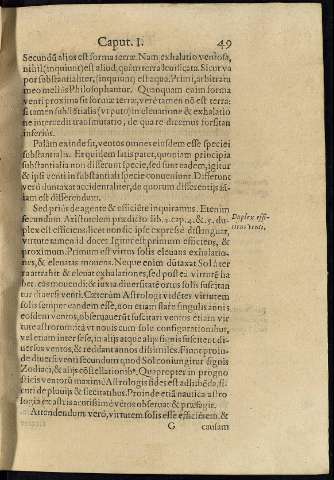 Caput. I. 49
Secundū alios est forma terræ. Nam exhalatio ventosa,
nihil (inquiunt) est aliud, quàm terra
por substantialiter, (inquiunt) est aqua. Primi, arbitratu
meo meliùs Philosophantur. Quonquam enim forma
venti proxima sit formæ terræ, verè tamen nō est terra:
sit tamen substātialis (vt puto) in eleuatione & exhalatio
ne intercedit transmutatio, de qua re dicemus forsitan
inferiùs.
Palàm exinde fit, ventos omnes eiusdem esse speciei
substantialis. Et quidem satis patet, quoniam principia
substantialia non dissecunt specie, sed sunt eadem, igitur
& ipsi venti in substantiali specie conueniunt. Differunt
verò duntaxat accidentaliter, de quorum dissentijs iā
iam est disserendum.
Sed priùs de agente & efficiēte inquiramus. Etenim
secundùm Aristhotelem prædicto lib. 2. cap. 4. & 5. du-
plex est efficiens, licet non sic ipse expressè distinguat,
virtute tamen id docet. Igitur est primum efficiens, &
Duplex effi-
ciens venti.
proximum. Primum est virtus solis eleuans exhalatio-
nes, & eleuatas mouens. Neque enim dūtaxat Sol àter
ra attrahit & eleuat exhalationes, sed post ea virtutē ha
bet eas mouendi; & iuxta diuersitatē ortus solis suscitan
tur diuersi venti. Cæterùm Astrologi vidētes virtutem
solis semper eandem esse, non etiam statis singulis annis
eosdem ventos, obseruauerūt suscitari ventos etiam vir
tute astrorum ita vt nouis cum sole configurationibus,
vel etiam inter sese, in alijs atque alijs signis suscitent di
uersos ventos, & reddant annos dissimiles. Hinc proin-
de diuersi venti secundum quod Sol coniungitur signis
Zodiaci, & alijs cōstellationib⁹. Quapropter in progno
sticis ventorū maximè Astrologis fides est adhibēda, si-
cuti de pluuijs & siccitatibus. Proinde etiā nautica astro
logia ex astris acutissimè vētos obseruat & præsagit.
Attendendum verò, virtutem solis esse efficiētem, &
G causam